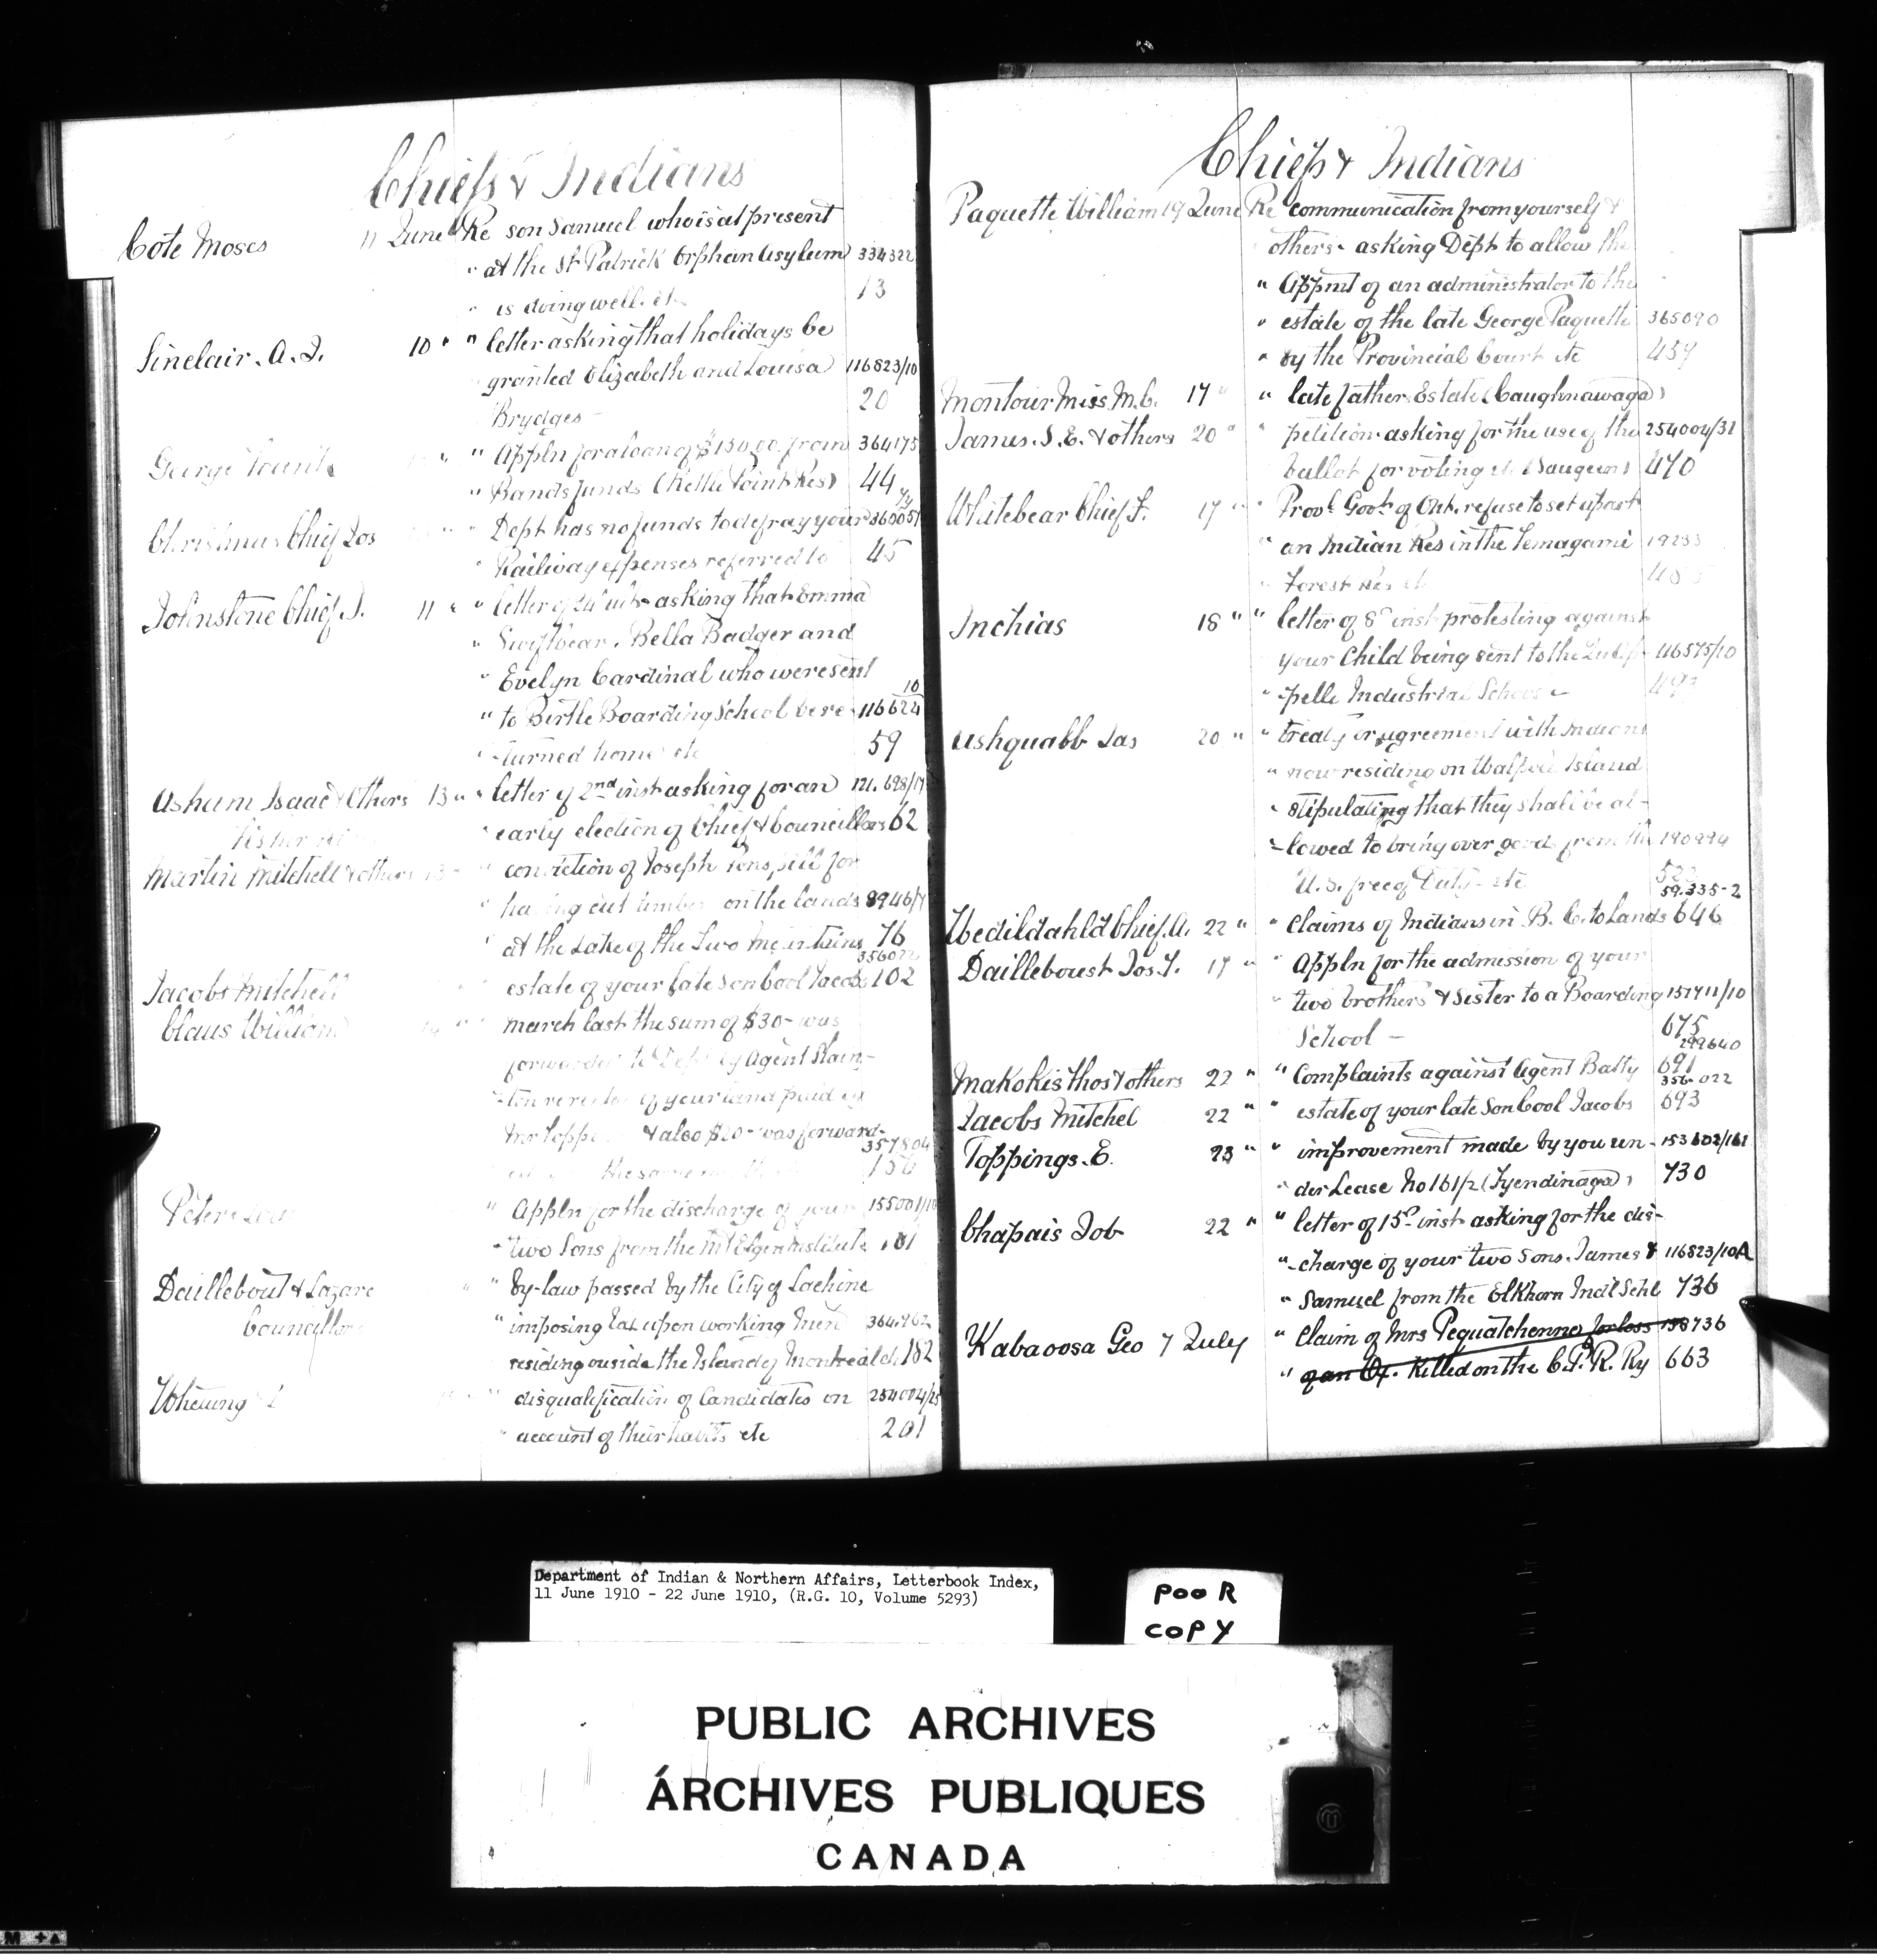 Chiefs & Indians
Cote Moses 11 June Re son Samuel who is at present
" at the St Patrick Orphan Asylum 334322
" is doing well. etc 13
Sinclair. A. J. 10 " " letter asking that holidays be
granted Elizabeth and Louisa 116823/10
Brydges - 20
George " " Appln for a loan of $150.00 from 364175
" Bands funds (Kettle Point Res) 44
Christmas Chief Jos " " Dept has no funds to defray your 36005
" Railway expenses referred to 45
Johnstone Chief J. 11 " " letter of 24th ulto asking that Emma
" Swiftbear, Bella Badger and
" Evelyn Cardinal who were sent 10
" to Birtle Boarding School be re- 116624
" -turned home etc 59
Asham Isaac & Others 13 " " letter of 2nd inst asking for an 121.698/17
" early election of Chief & Councillors 62
Martin Mitchell & others 13 " " conviction of Joseph for
" having cut timber on the lands 8946/7
" at the Lake of the Two Mountains 76
356022
Jacobs Mitchell " estate of your late son Cool Jacobs 102
Claus William " " March last the sum of $30- was
forwarded to Dept by Agent Stain-
-ton re of your land paid by
Mr & also $20- was forward-
357804
the same 156
Peter " Appln for the discharge of your 155001/10
" two Sons from the Mt Elgin Institute 161
Daillebout & Lazare " " by-law passed by the City of Lachine
Councillors " imposing tax upon working men 364962
residing ouside the Island of Montreal etc 182
Whetung " " disqualification of Candidates on 254004/25
" account of their habits etc 201
Chiefs & Indians
Paquette William 19 June Re communication from yourself &
others - asking Dept to allow the
" Appmt of an administrator to the
" estate of the late George Paquette 365090
" by the Provincial Court etc 459
Montour Miss M. C. 17 " " late father. Estate (Caughnawaga)
James. S. E. & others 20 " " petition asking for the use of the 254004/31
ballot for voting etc (Saugeen) 470
Whitebear Chief F. 17 " " Provl Govt of Ont. refuse to set apart
" an Indian Res in the Temagami 19233
" Forest Res etc 485
Inchias 18 " " letter of 8th inst protesting against
your Child being sent to the Qu'Ap- 116575/10
" -pelle Industrial School -
Ashquabb Jas 20 " " treaty or agreement with Indians
" now residing on Walpole Island
" stipulating that they shall be al-
-lowed to bring over goods from the 190994
U. S. free of Duty - etc
59.335-2
Chief. A. 22 " " Claims of Indians in B. C. to Lands 646
Dailleboust Jos. T. 17 " " Appln for the admission of your
" two brothers & Sister to a Boarding 157411/10
School - 675
299640
Makokis thos & others 22 " " Complaints against Agent Batty 691
356.022
Jacobs Mitchel 22 " " estate of your late Son Cool Jacobs 693
Toppings. E. 23 " " improvement made by you un- 153602/161
" der Lease No 161/2 (Tyendinaga) 730
Chapais Job 22 " " letter of 15th inst asking for the dis-
" -charge of your two Sons. James & 116823/10A
" Samuel from the Elkhorn Indl Schl 736
Kabaoosa Geo 7 July " Claim of Mrs Pequatchenne for loss 158736
" of an Ox. Killed on the C. P. R. Ry 663
Department of Indian & Northern Affairs, Letterbook Index,
11 June 1910 - 22 June 1910, (R.G. 10, Volume 5293)
POOR
COPY
PUBLIC ARCHIVES
ÁRCHIVES PUBLIQUES
CANADA